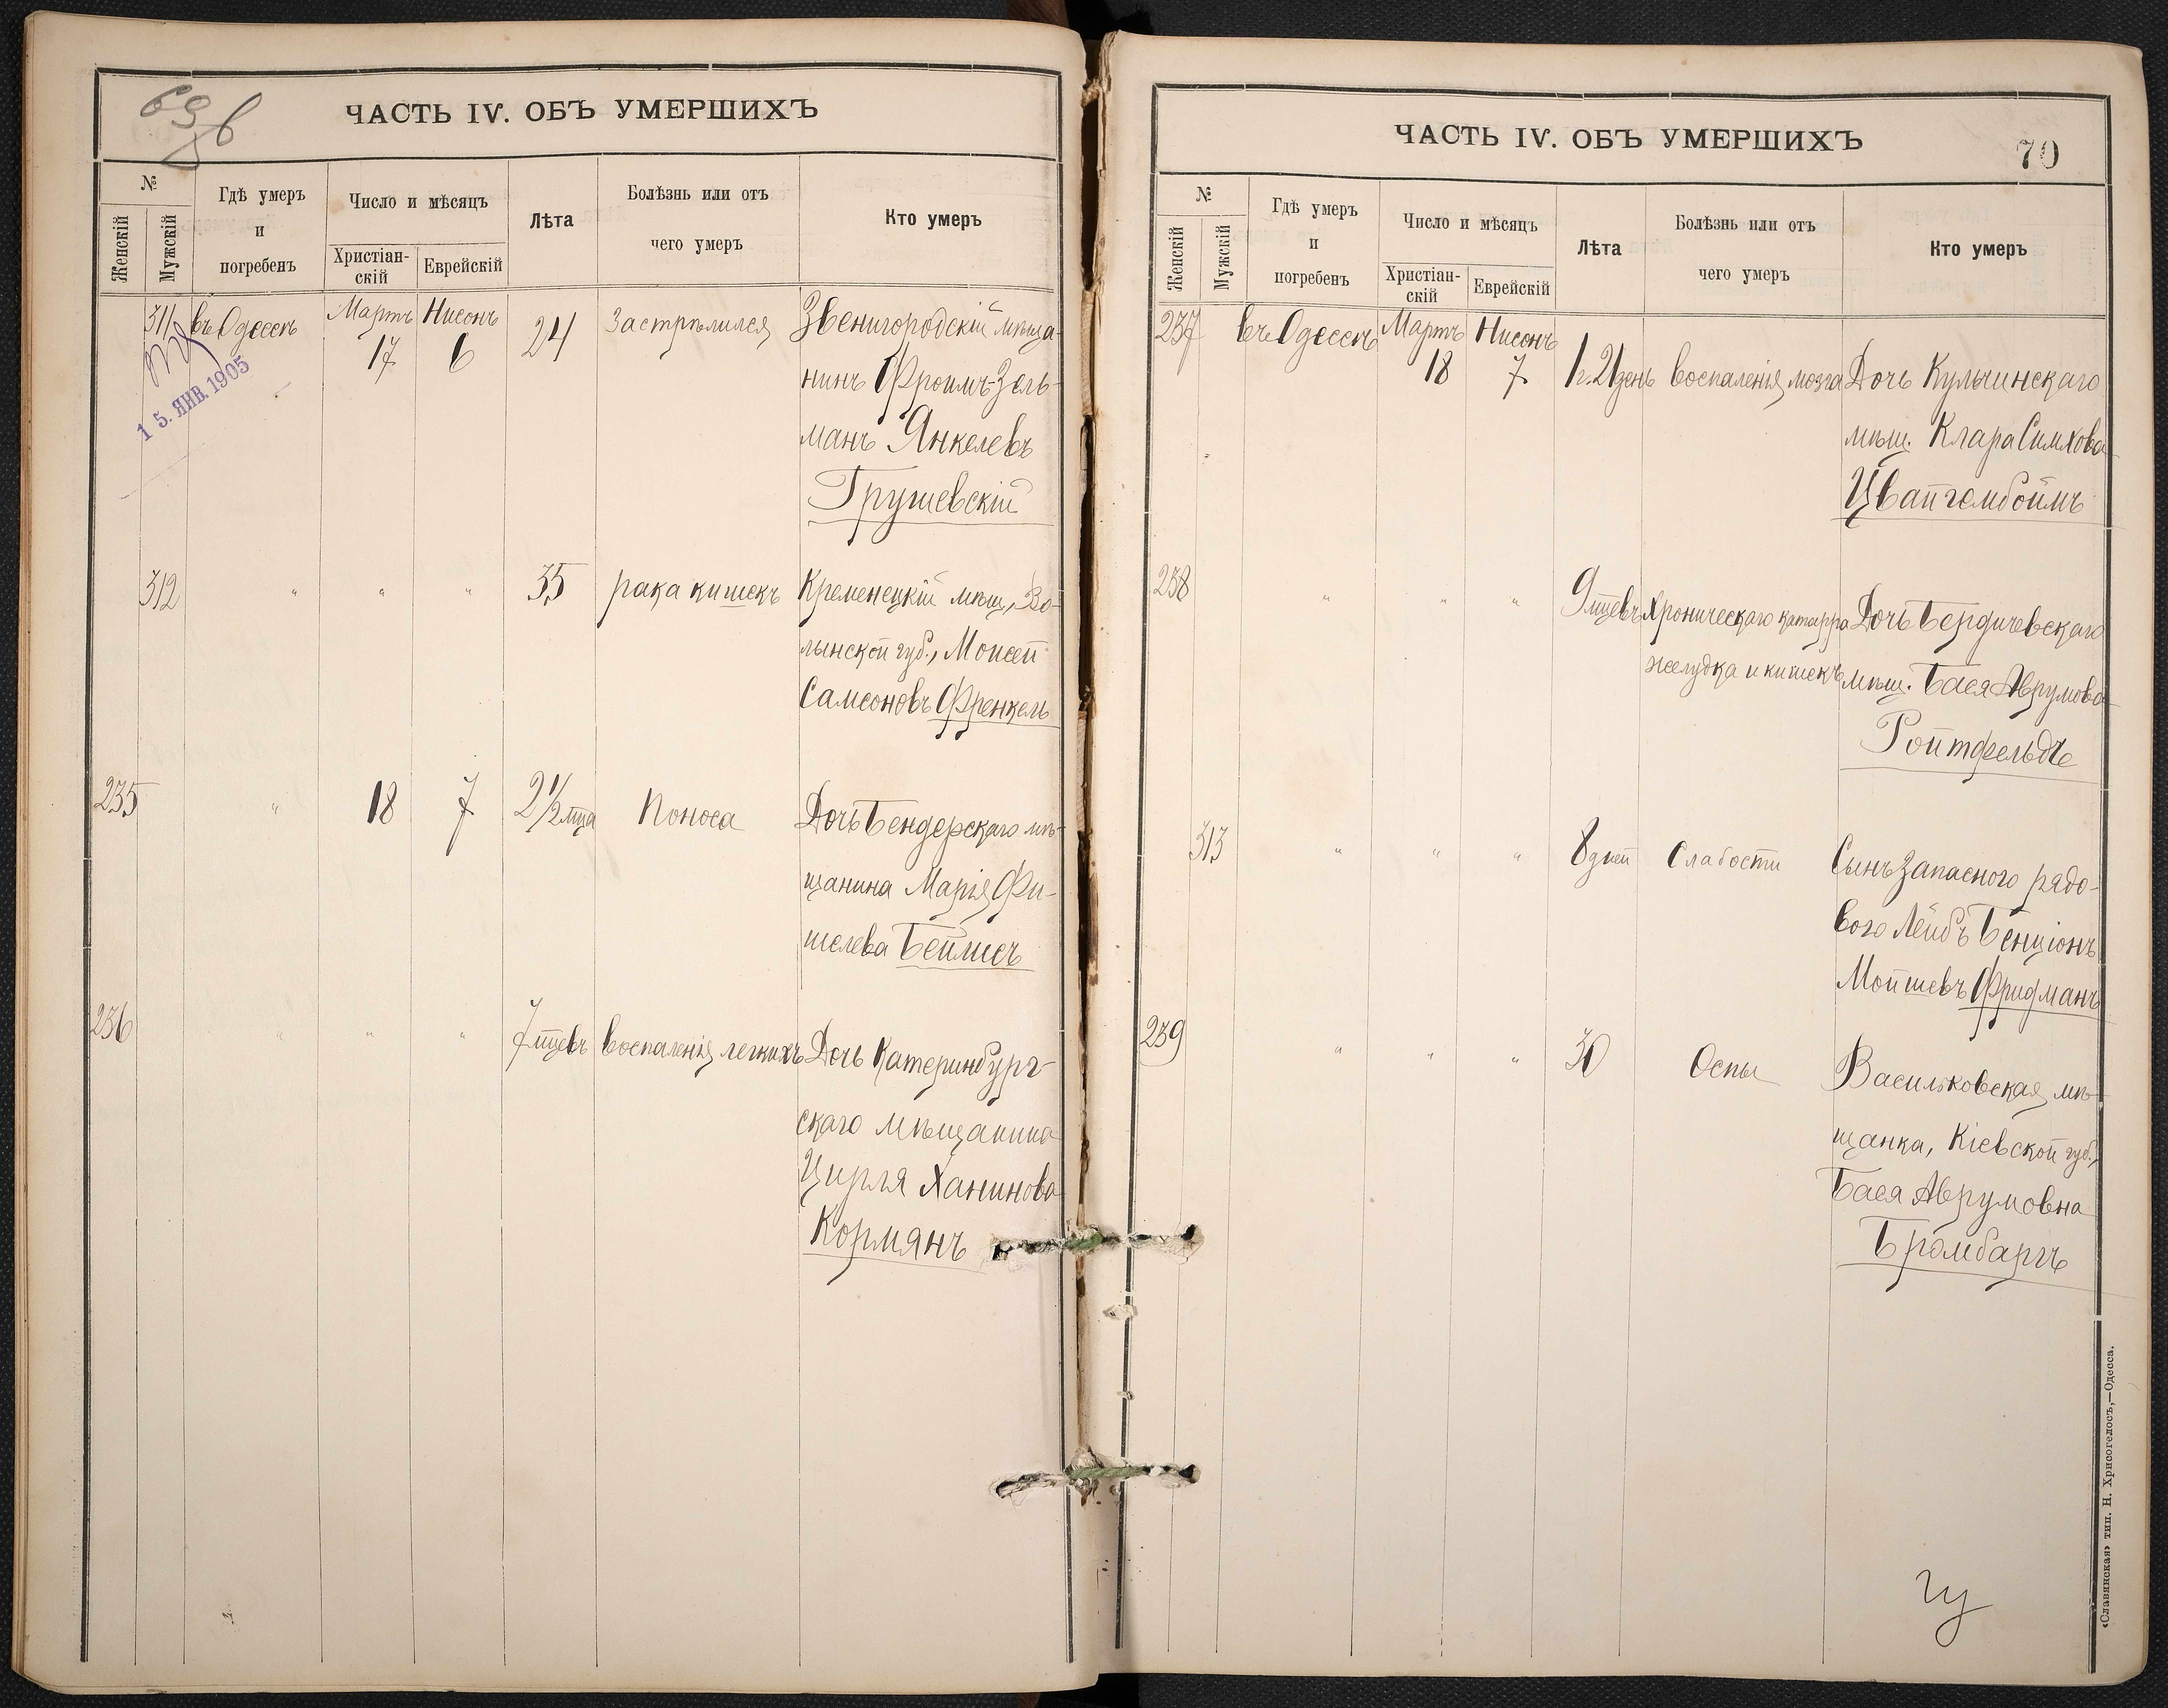 69 б
ЧАСТЬ IV. ОБЪ УМЕРШИХЪ
№
Женскій
Мужскій
Гдѣ умеръ
и
погребенъ
Число и мѣсяцъ
Христіан-
скій
Еврейскій
Лѣта
Болѣзнь или отъ
чего умеръ
Кто умеръ
311 въ Одессѣ Мартъ 17 Нисонъ 6 24 Застрѣлился Звенигородскій мѣща-
нинъ Фроимъ-Зель-
манъ Янкелевъ
Грушевскій
15. ЯНВ. 1905
312 " " " 35 рака кишекъ Кременецкій мѣщ., Во-
лынской губ., Моисей
Самсоновъ Френкель
235 " 18 7 2 1/2 мца Поноса Дочь Бендерскаго мѣ-
щанина Марія Фи-
шелева Беймсъ
236 " " " 7 мцевъ воспаленія легкихъ Дочь Катеринбург-
скаго мѣщанина
Цирля Ханинова
Кормянъ
ЧАСТЬ IV. ОБЪ УМЕРШИХЪ
70
№
Женскій
Мужскій
Гдѣ умеръ
и
погребенъ
Число и мѣсяцъ
Христіан-
скій
Еврейскій
Лѣта
Болѣзнь или отъ
чего умеръ
Кто умеръ
237 въ Одессѣ Мартъ 18 Нисонъ 7 1 г. 21 день воспаленія мозга Дочь Кульчинскаго
мѣщ. Клара Симхова
Цвайгембоймъ
238 " " " 9 мцевъ Хроническаго катарра Дочь Бердичевскаго
желудка и кишекъ мѣщ. Бася Аврумова
Ройтфельдъ
313 " " " 8 дней Слабости Сынъ запасного рядо-
вого Лейбъ Бенціонъ
Мойшевъ Фридманъ
239 " " " 30 Оспы Васильковская мѣ-
щанка, Кіевской губ.,
Бася Аврумовна
Бромбаргъ
«Славянская» тип. Н. Хрисогелосъ,—Одесса.